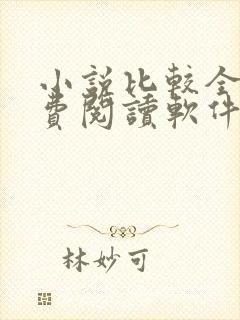 小說比較全
費閱讀軟件
林妙可